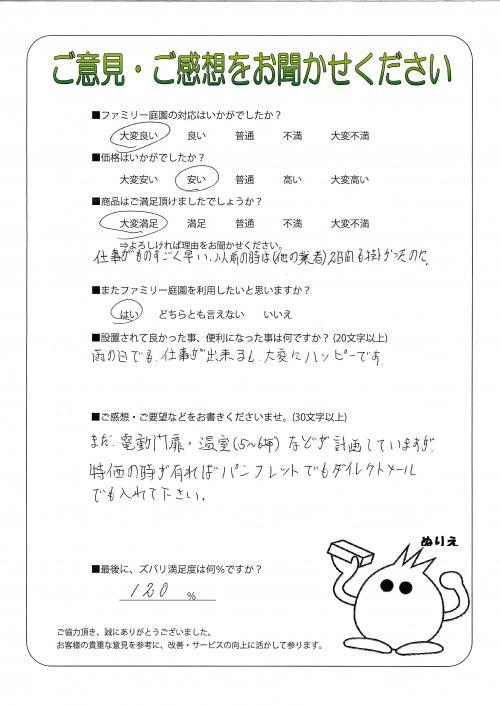 ご意見・ご感想をお聞かせください
■ファミリー庭園の対応はいかがでしたか？
大変良い 良い 普通 不満 大変不満
■価格はいかがでしたか？
大変安い 安い 普通 高い 大変高い
■商品はご満足頂けましたでしょうか？
大変満足 満足 普通 不満 大変不満
⇒よろしければ理由をお聞かせください。
仕事がものすごく早い、以前の時は(他の業者)2日間も掛かったのに。
■またファミリー庭園を利用したいと思いますか？
はい どちらとも言えない いいえ
■設置されて良かった事、便利になった事は何ですか？(20文字以上)
雨の日でも、仕事が出来るし、大変にハッピーです。
■ご感想・ご要望などをお書きくださいませ。(30文字以上)
まだ、電動門扉・温室(5～6年)などが計画していますが、
特価の時が有ればパンフレットでもダイレクトメール
でも入れて下さい。
ぬりえ
■最後に、ズバリ満足度は何％ですか？
120 %
ご協力頂き、誠にありがとうございました。
お客様の貴重な意見を参考に、改善・サービスの向上に活かして参ります。